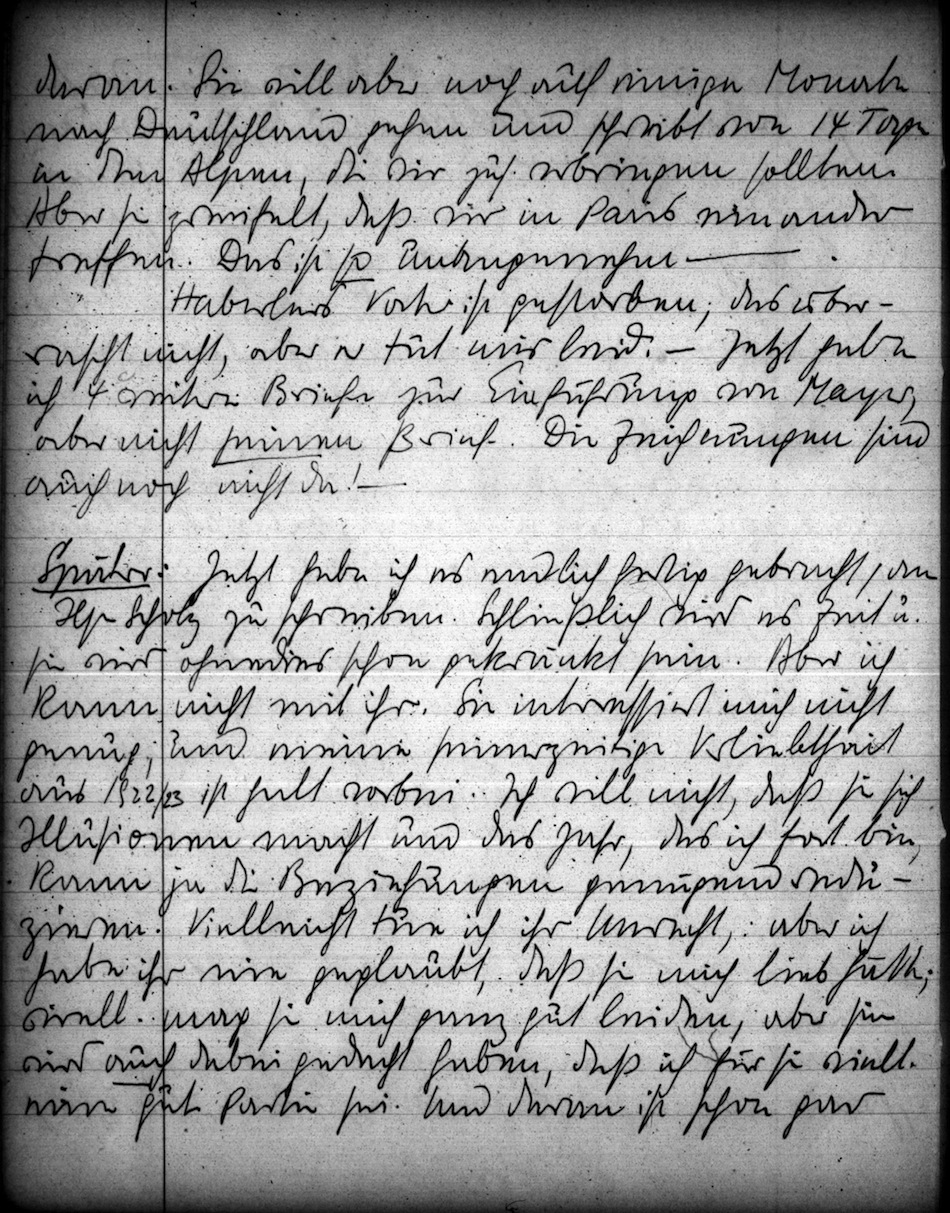 daran. Sie will aber noch auf einige Monate
nach Deutschland gehen und schreibt von 14 Tage
in den Alpen, die wir zus. verbringen sollten.
Aber sie zweifelt, daß wir in Paris einander
treffen. Das ist so unangenehm —
Haberlers Vater ist gestorben, das über-
rascht nicht, aber er tut mir leid. — Jetzt habe
ich 4 weitere Briefe zur Einführung von Mayer,
aber nicht seinen Brief. Die Zeichnungen sind
auch noch nicht da! —
Später: Jetzt habe ich es endlich fertig gebracht, an
Ilse Scholz zu schreiben. Schließlich wird es Zeit u.
sie wird ohnedies schon gekränkt sein. Aber ich
kann nicht mit ihr. Sie interessiert mich nicht
genug, und meine seinerzeitige Verliebtheit
aus 1922/23 ist halt vorbei. Ich will nicht, daß sie sich
Illusionen macht und das Jahr, das ich fort bin,
kann ja die Beziehungen genügend redu-
zieren. Vielleicht tue ich ihr Unrecht, aber ich
habe ihr nie geglaubt, daß sie mich lieb hätte;
viell. mag sie mich ganz gut leiden, aber sie
wird auch dabei gedacht haben, daß ich für sie viell.
eine gute Partie sei. Und daran ist schon gar